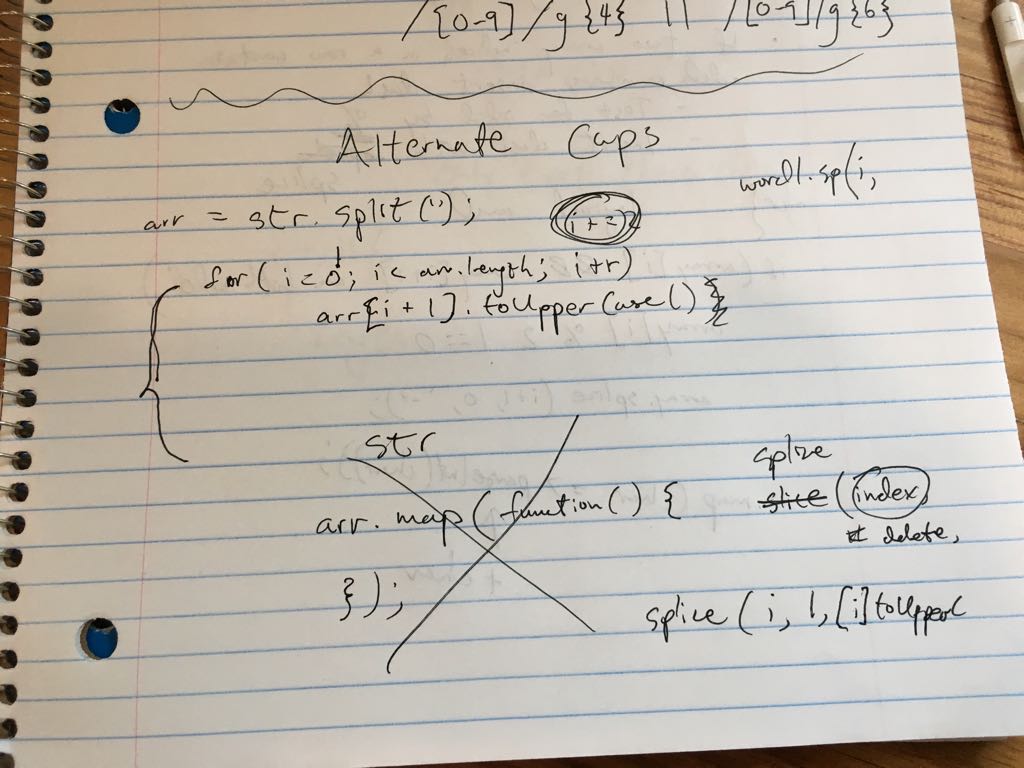 /[0-9]/g {4} || /[0-9]/g {6}
Alternate Caps
word1.sp(i,
arr = str.split('');
i+=2
for(i=0; i< arr.length; i++)
arr[i+1].toUpperCase()}
str
arr.map(function() {
});
splice
slice (index)
# delete,
splice (i, 1, [i]toUpperC